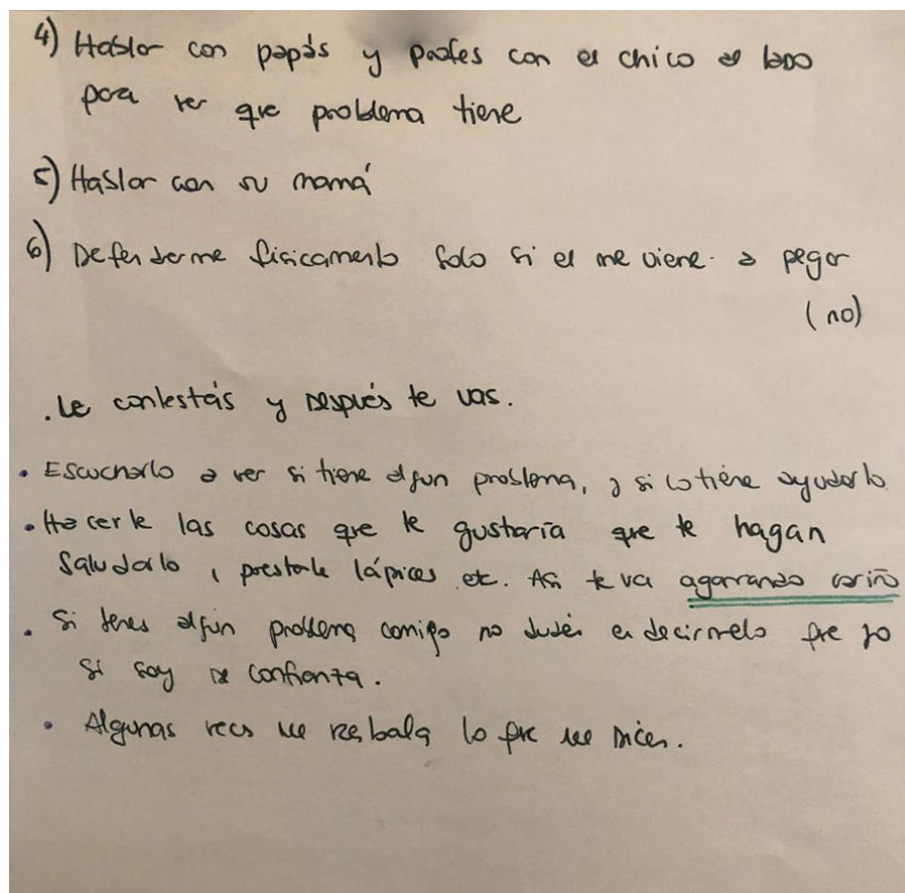 4) Hablar con papás y profes con el chico al lado
para ver que problema tiene
5) Hablar con su mamá
6) Defenderme físicamente solo si el me viene a pegar
(no)
. Le contestás y después te vas.
• Escucharlo a ver si tiene algun problema, y si lo tiene ayudarlo
• Hacerle las cosas que te gustaría que te hagan
Saludarlo, prestarle lápices etc. Asi te va agarrando cariño
• Si tenes algún problema conmigo no dudes en decirmelo que yo
si soy de confianza.
• Algunas veces me resbala lo que me dicen.